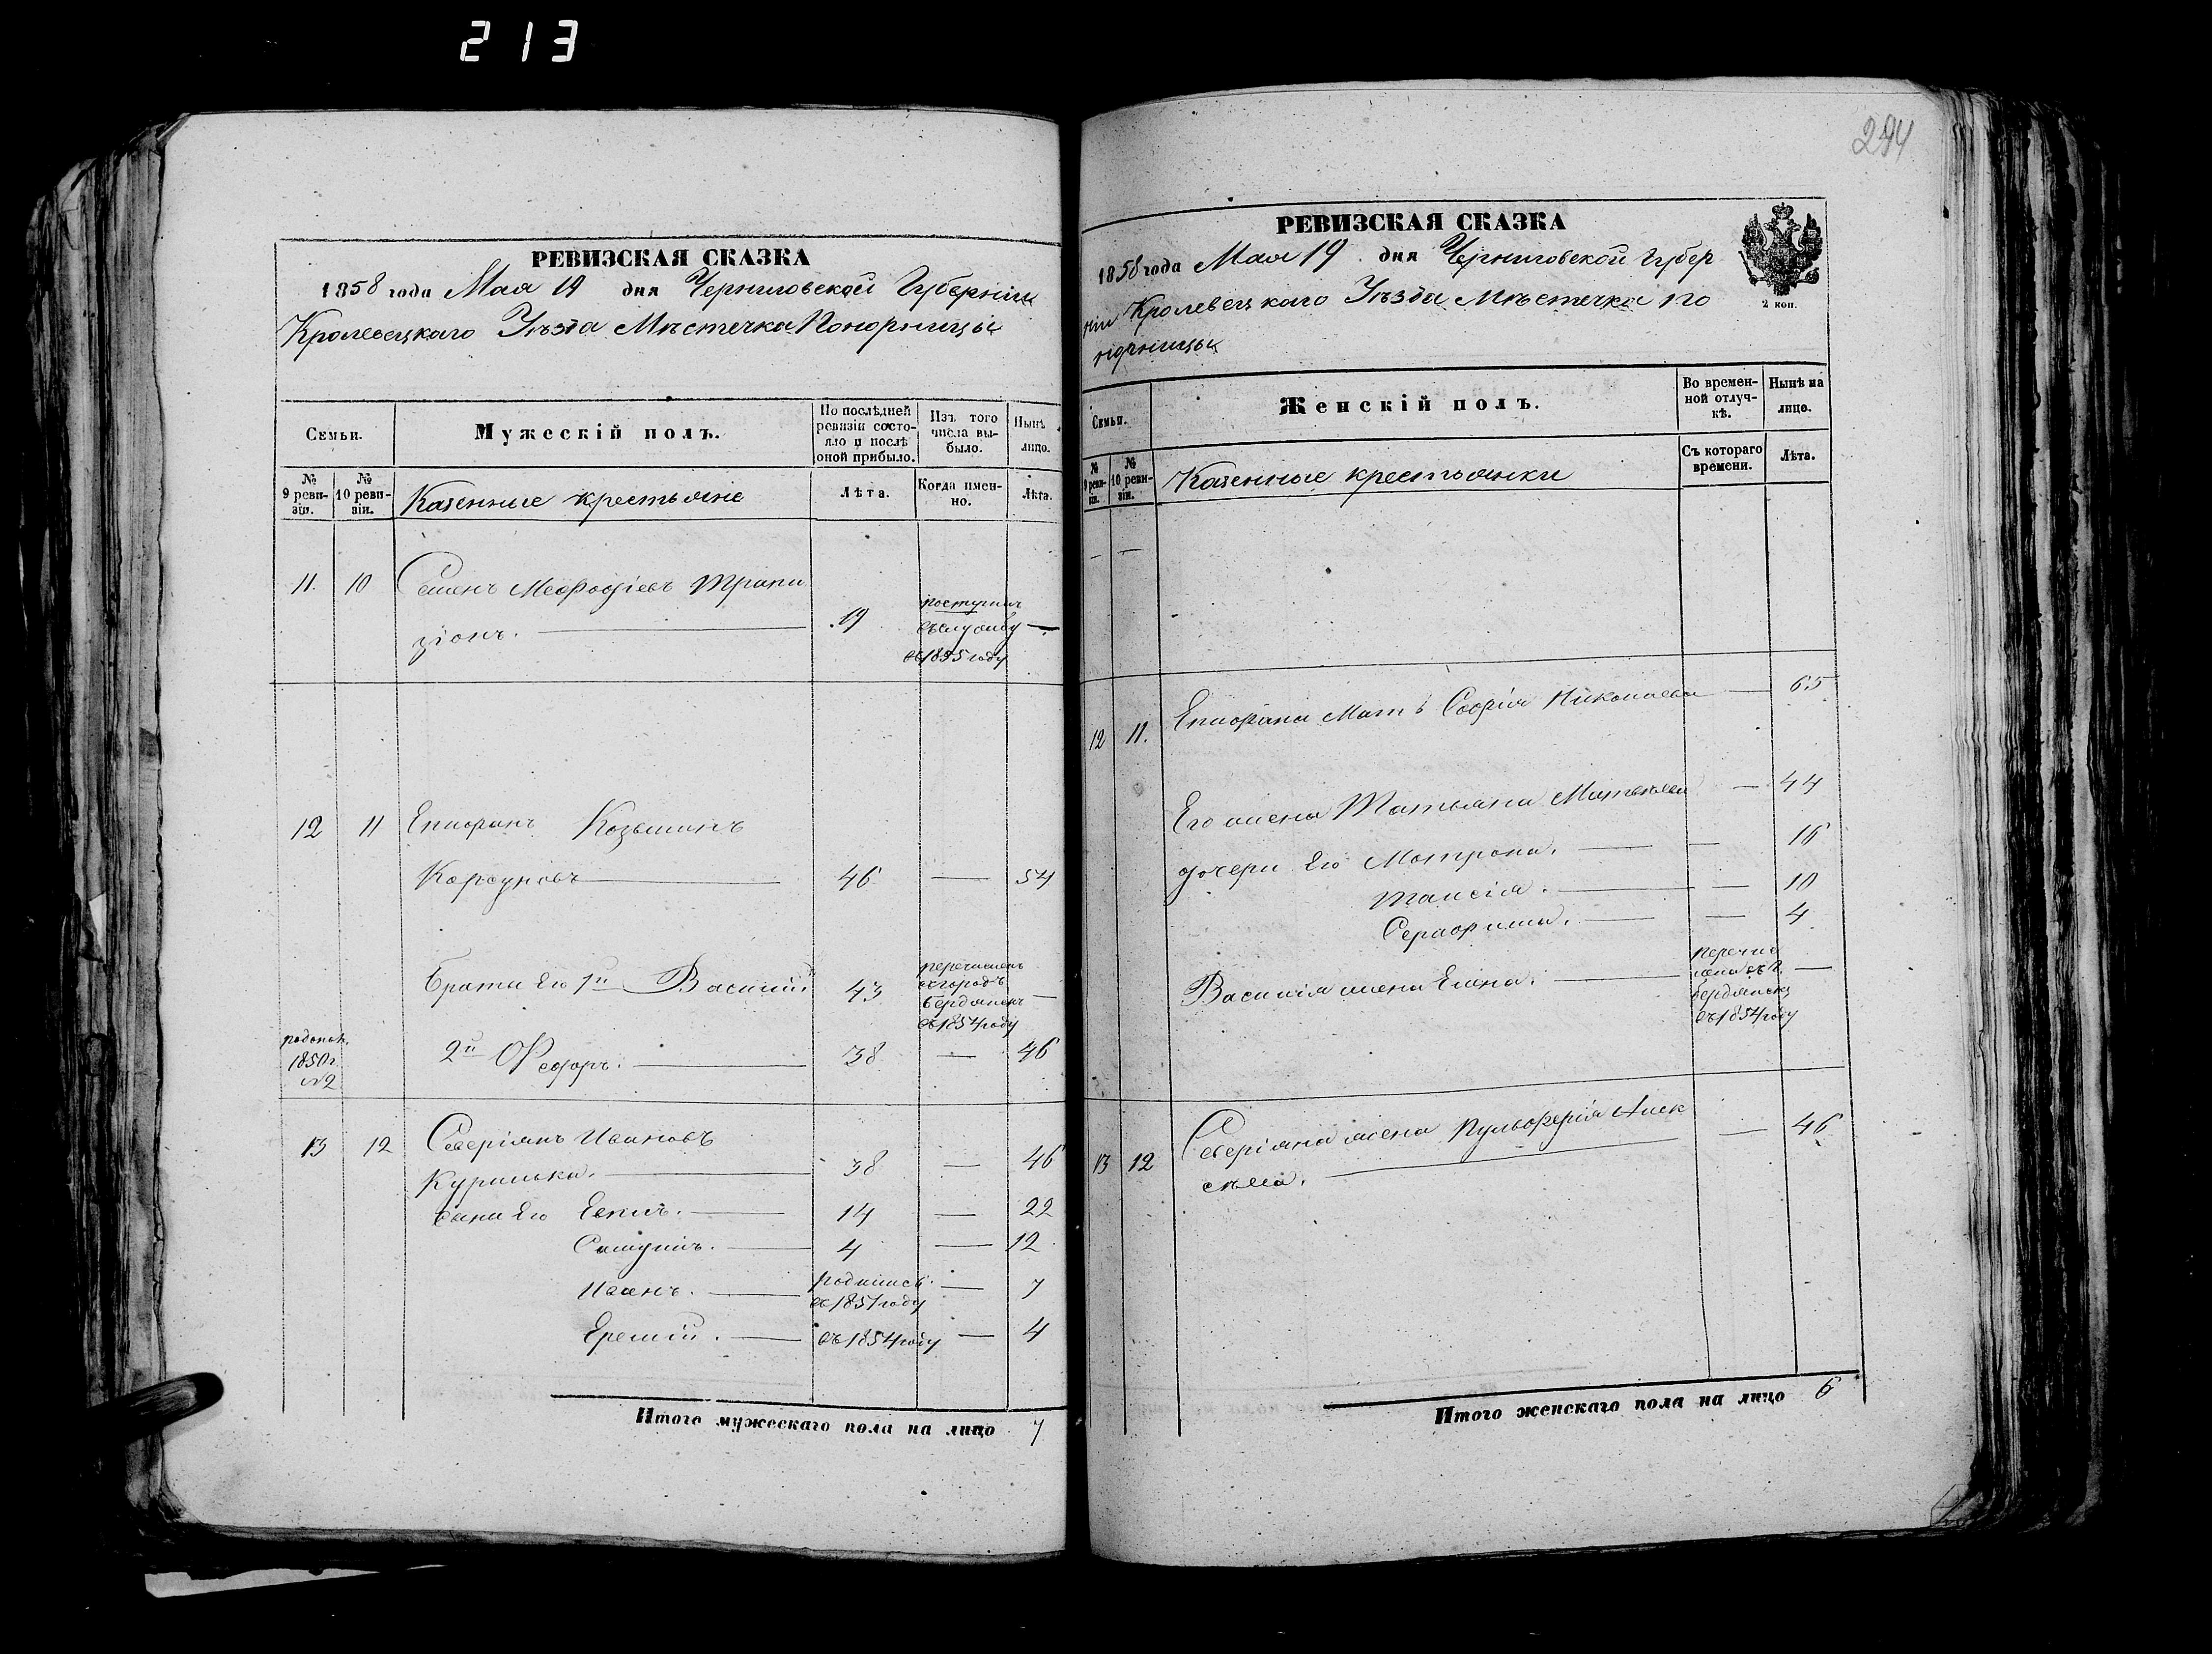 213
РЕВИЗСКАЯ СКАЗКА
1858 года Мая 19 дня Черниговской Губерніи
Кролевецкаго Уѣзда Мѣстечка Понорницы
Семьи.
Мужескій полъ.
По послѣдней ревизіи состояло и послѣ оной прибыло.
Изъ того числа выбыло.
Нынѣ лицо.
№ 9 ревизіи.
№ 10 ревизіи.
Казенные крестьяне
Лѣта.
Когда именно.
Лѣта.
11. 10 Семенъ Меѳодіевъ
19 поступилъ
въ службу —
въ 1855 году
12 11 Козьминъ
Корсуновъ 46 — 54
Братья Его 1й Василій 43 перечисленъ
въ городъ
Бердянскъ —
въ 1854 году
1850 г.
№ 2
2й Ѳедоръ. 38 — 46
13 12 Северіянъ Ивановъ
Курилка. 38 — 46
Сыны Его 14 — 22
4 — 12
Иванъ. родился
въ 1851 году — 7
Еремій. въ 1854 году — 4
Итого мужескаго пола на лицо 7
294
РЕВИЗСКАЯ СКАЗКА
1858 года Мая 19 дня Черниговской Губер
ніи Кролевецкаго Уѣзда Мѣстечка По
норницы
2 коп.
Семьи.
Женскій полъ.
Во временной отлучкѣ.
Нынѣ на лицо.
№ 9 ревизіи.
№ 10 ревизіи.
Казенные крестьянки
Съ котораго времени.
Лѣта.
— —
12 11. Мать Софія Николаева — 65
Его жена Татьяна Матвѣева — 44
дочери Его Матрона. — 16
Таисія. — 10
Серафима. — 4
Василія жена Елена. перечис
лена въ г. —
Бердянскъ
въ 1854 году
13 12 Северіяна жена Пульхерія Алек
сѣева. — 46
Итого женскаго пола на лицо 6